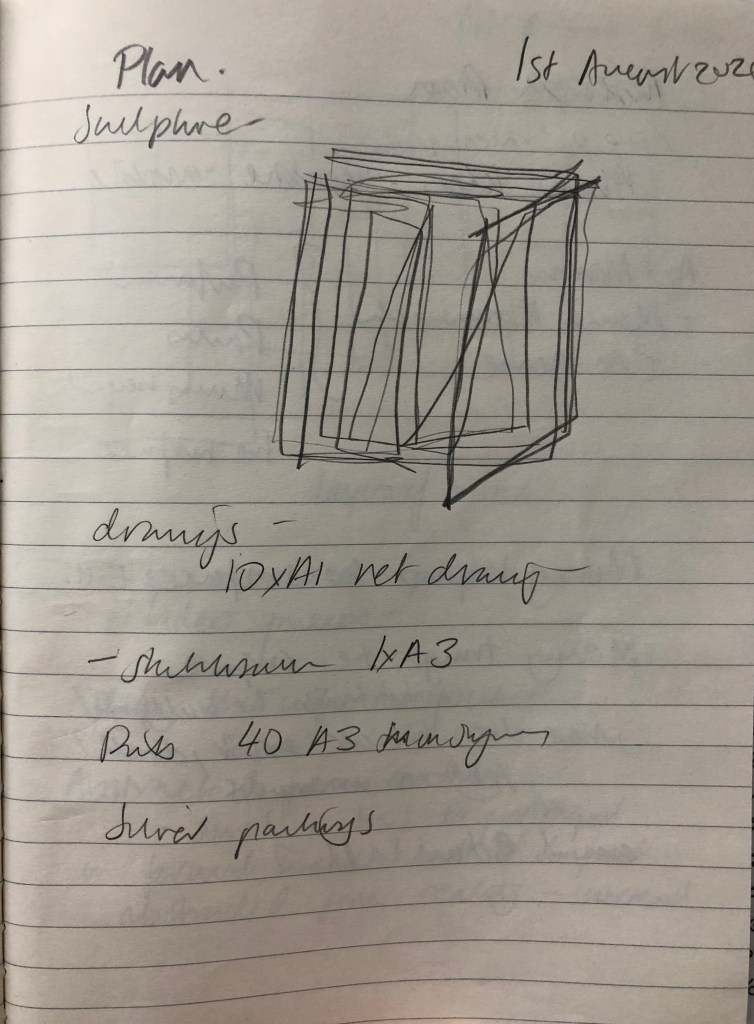 Plan. 1st August 202
Sculpture -
drawings -
10xA1 net drawing
- 1xA3
Prints 40 A3
paintings